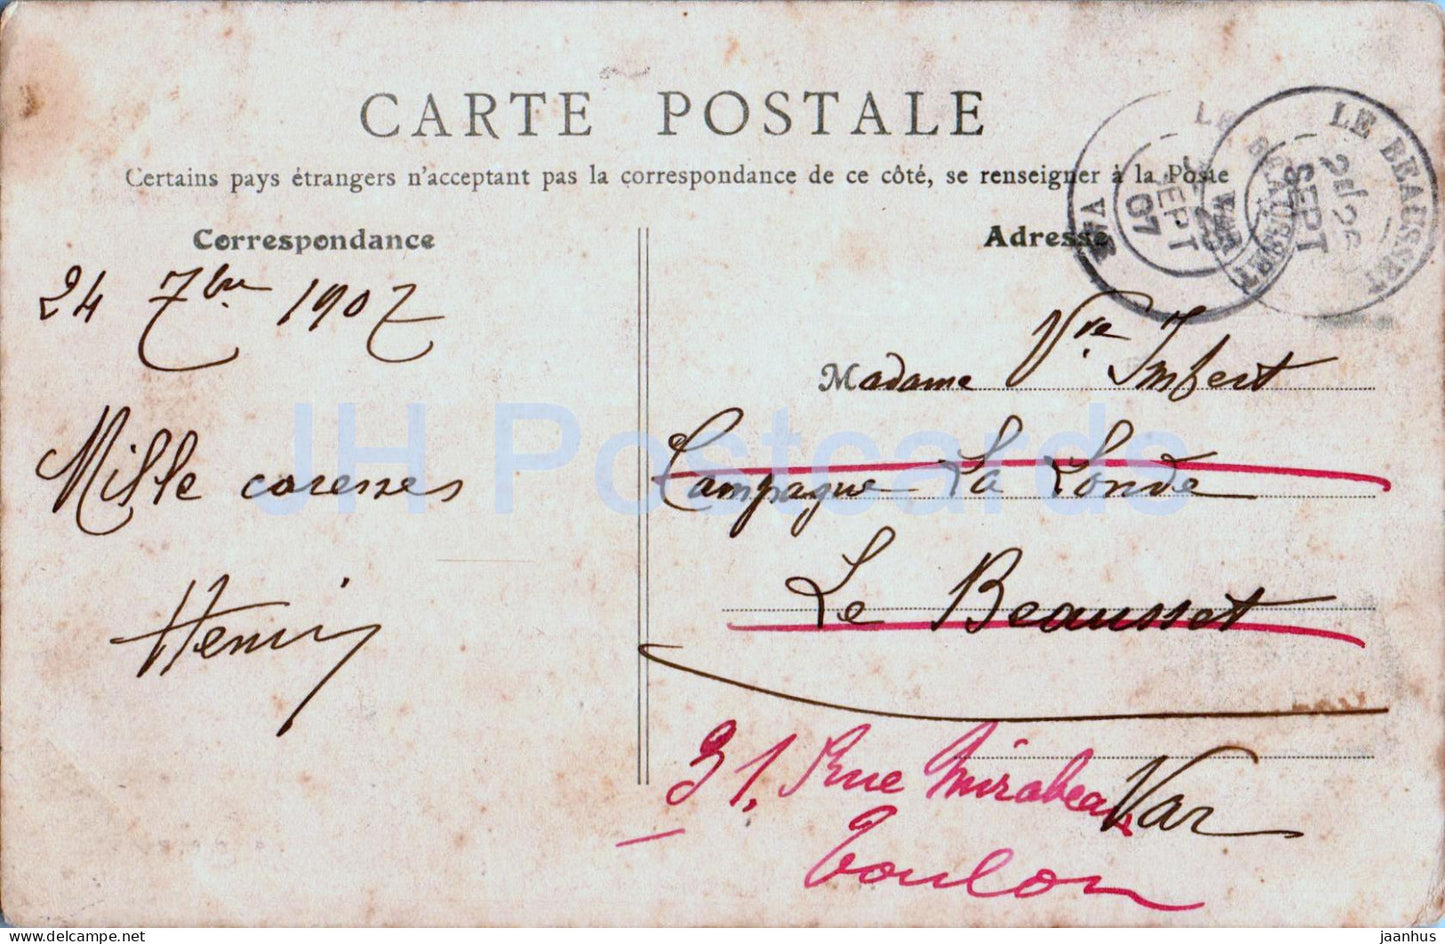 CARTE POSTALE
Certains pays étrangers n'acceptant pas la correspondance de ce côté, se renseigner à la Poste
Correspondance
Adresse
24 7bre 1907
Mille caresses
Henri
Madame Vve Imbert
Campagne La Londe
Le Beausset
Var
31, Rue Mirabeau
Toulon
LE BEAUSSET
SEPT
VAR
LE BEAUSSET
25
SEPT
07
VAR
JH Postcards
jaanhus
delcampe.net